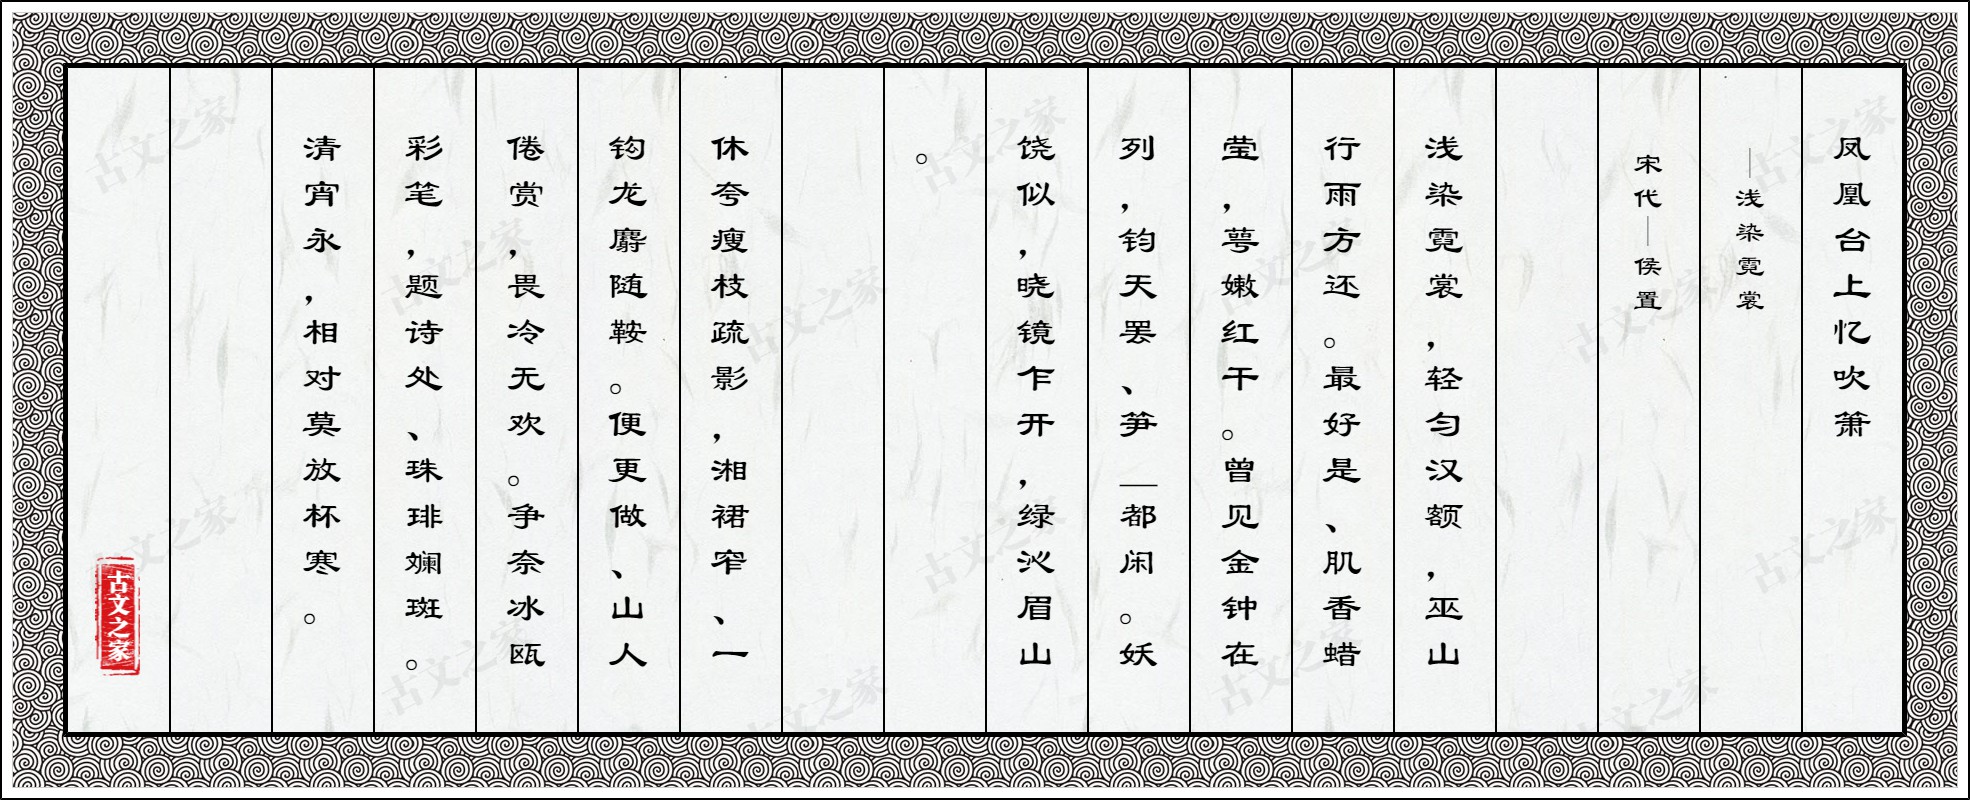 凤凰台上忆吹箫
—浅染霓裳
宋代—侯置
浅染霓裳，轻匀汉额，巫山
行雨方还。最好是、肌香蜡
莹，萼嫩红干。曾见金钟在
列，钧天罢、笋—都闲。妖
饶似，晓镜乍开，绿沁眉山
。
休夸瘦枝疏影，湘裙窄、一
钩龙麝随鞍。便更做、山人
倦赏，畏冷无欢。争奈冰瓯
彩笔，题诗处、珠琲斓斑。
清宵永，相对莫放杯寒。
古文之家